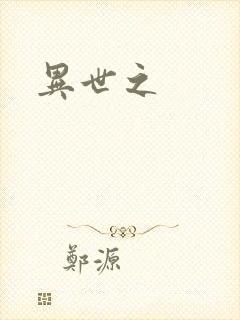 異世之
鄭源